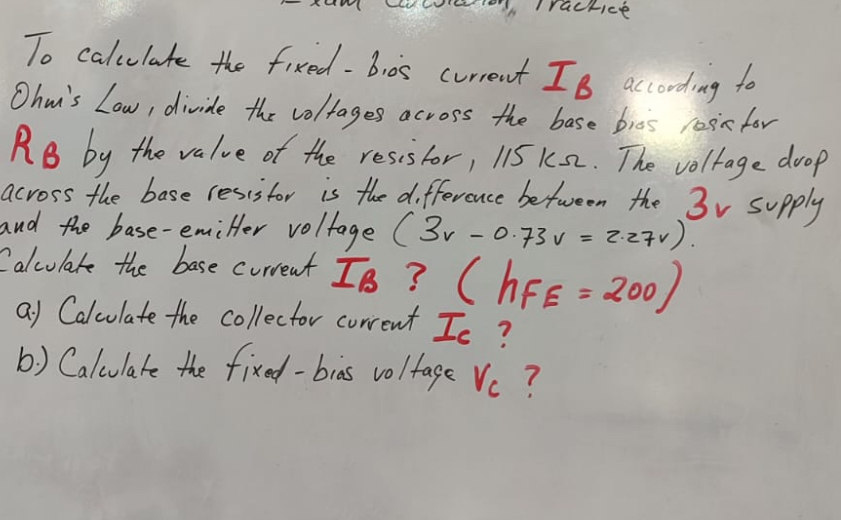 Practice
To calculate the fixed-bias current IB according to
Ohm's Law, divide the voltages across the base bias resistor
RB by the value of the resistor, 115 KΩ. The voltage drop
across the base resistor is the difference between the 3v supply
and the base-emitter voltage (3v - 0.73v = 2.27v).
Calculate the base current IB ? (hFE = 200)
a.) Calculate the collector current Ic ?
b.) Calculate the fixed-bias voltage Vc ?